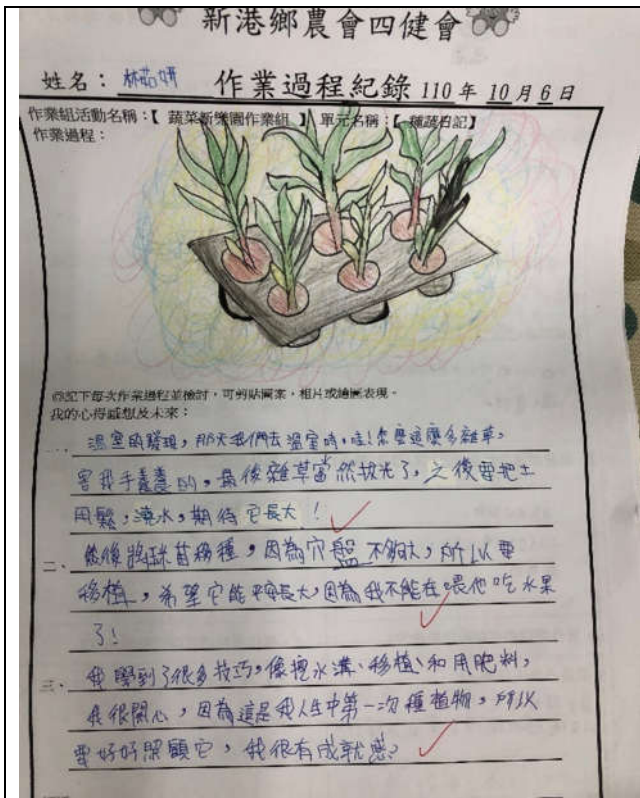 新港鄉農會四健會
姓名：林茹妍 作業過程紀錄 110年 10月 6日
作業組活動名稱：【 蔬菜新樂園作業組 】 單元名稱：【 種蔬日記】
作業過程：
◎記下每次作業過程並檢討，可剪貼圖案，相片或繪圖表現。
我的心得感想及未來：
一、溫室的發現，那天我們去溫室時，哇！怎麼這麼多雜草，
害我手養養的，最後雜草當然拔光了，之後要把土
用鬆，澆水，期待它長大！
二、然後將球苗移種，因為穴盤不夠大，所以要
移植，希望它能平安長大，因為我不能在喂他吃水果
了！
三、我學到了很多技巧，像挖水溝、移植、和用肥料，
我很開心，因為這是我人生中第一次種植物，所以
要好好照顧它，我很有成就感？